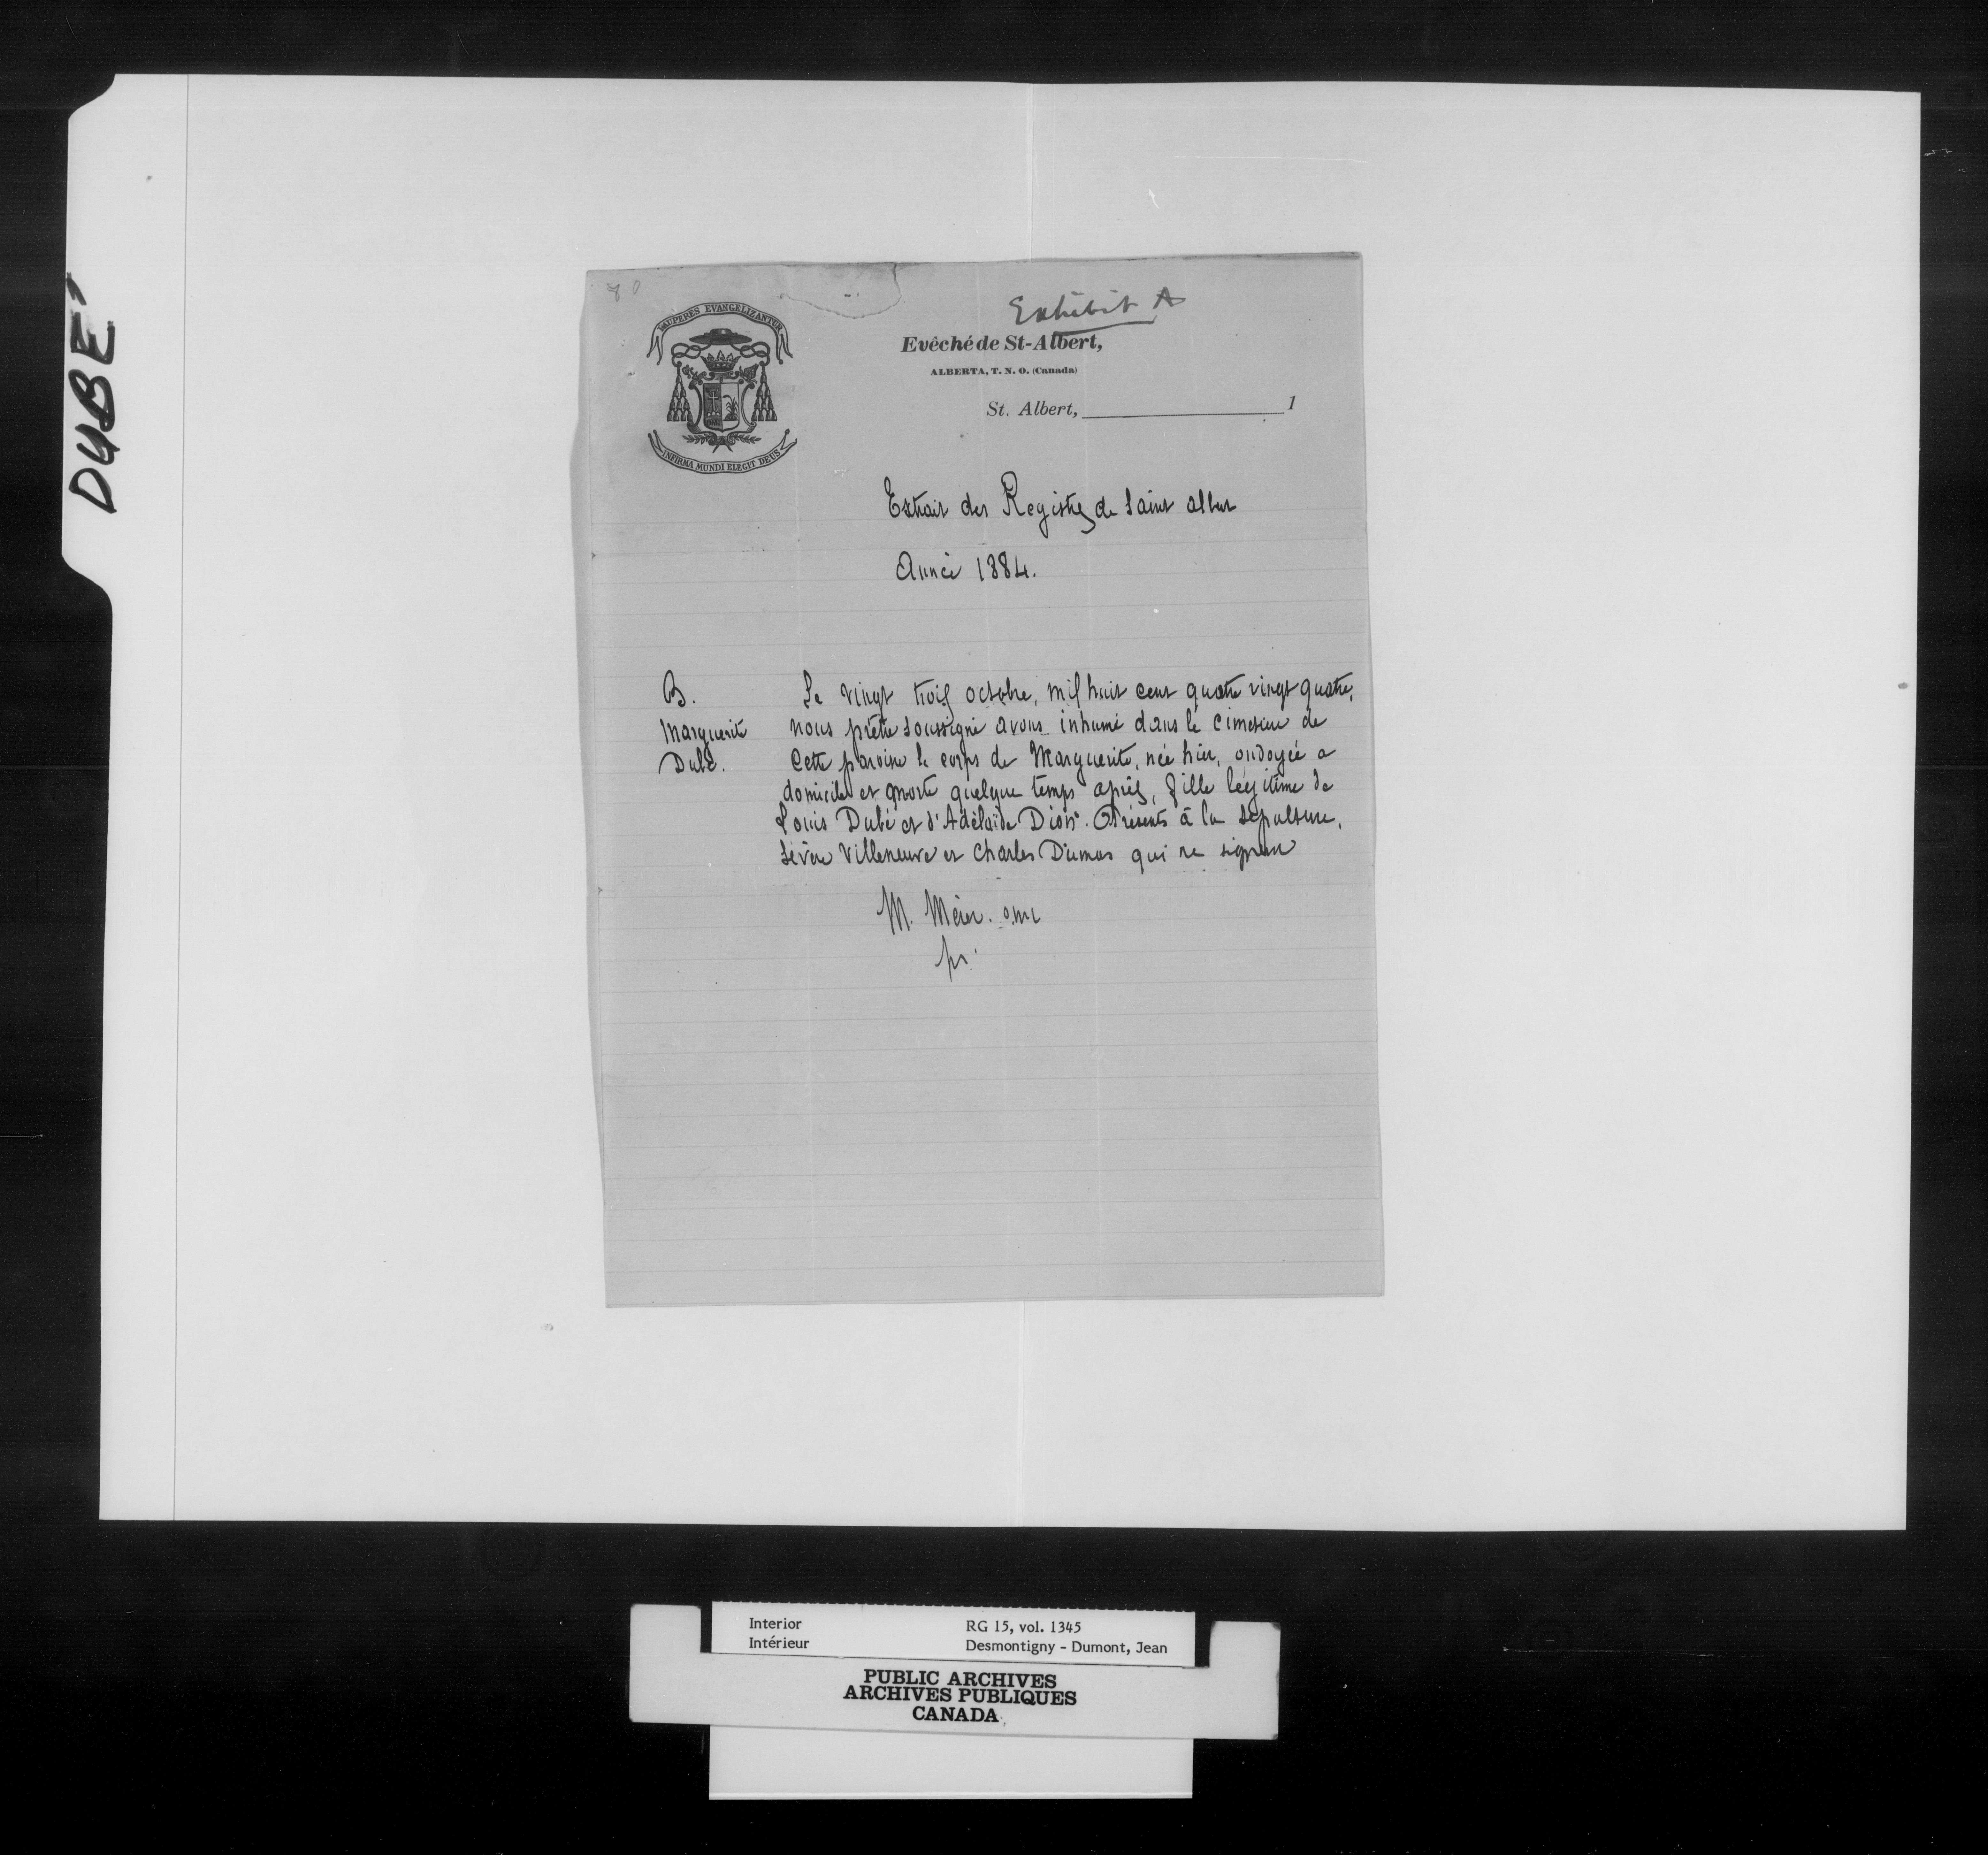 DUBE'
Exhibit A
PAUPERES EVANGELIZANTUR
INFIRMA MUNDI ELEGIT DEUS
Evêché de St-Albert,
ALBERTA, T. N. O. (Canada)
St. Albert, 1
Extrait des Registres de Saint Albert
Année 1884.
B.
Marguerite
Dubé.
Le vingt trois octobre, mil huit cent quatre vingt quatre,
nous prêtre soussigné avons inhumé dans le cimetière de
cette paroisse le corps de Marguerite, née hier, ondoyée a
domicile et morte quelque temps après, fille légitime de
Louis Dubé et d'Adélaïde Dion. Présents à la sépulture,
Sévère Villeneuve et Charles Dumas qui ne signent
M. Mérer. omi
pr.
Interior
Intérieur
RG 15, vol. 1345
Desmontigny - Dumont, Jean
PUBLIC ARCHIVES
ARCHIVES PUBLIQUES
CANADA